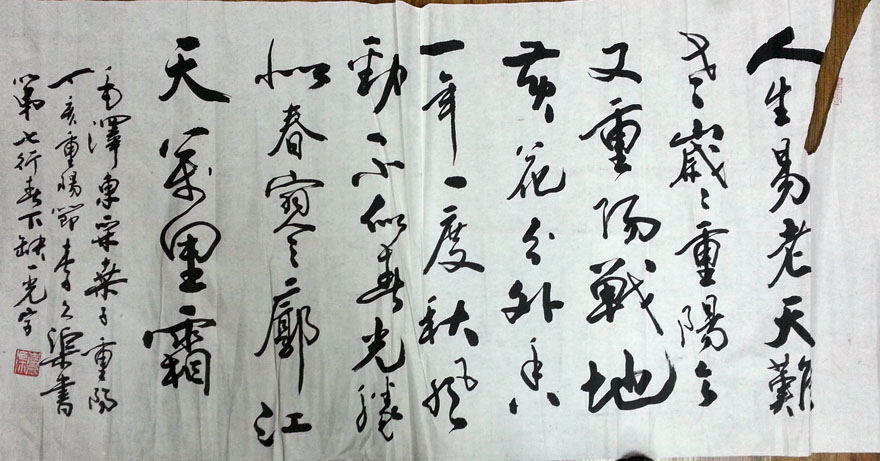 人生易老天難
老〻歲〻重陽今
又重陽戰地
黄花分外香
一年一度秋風
勁不似春光勝
似春寥廓江
天萬里霜
毛澤東采桑子重陽
丁亥重陽節李久渠書
第七行春下缺一光字